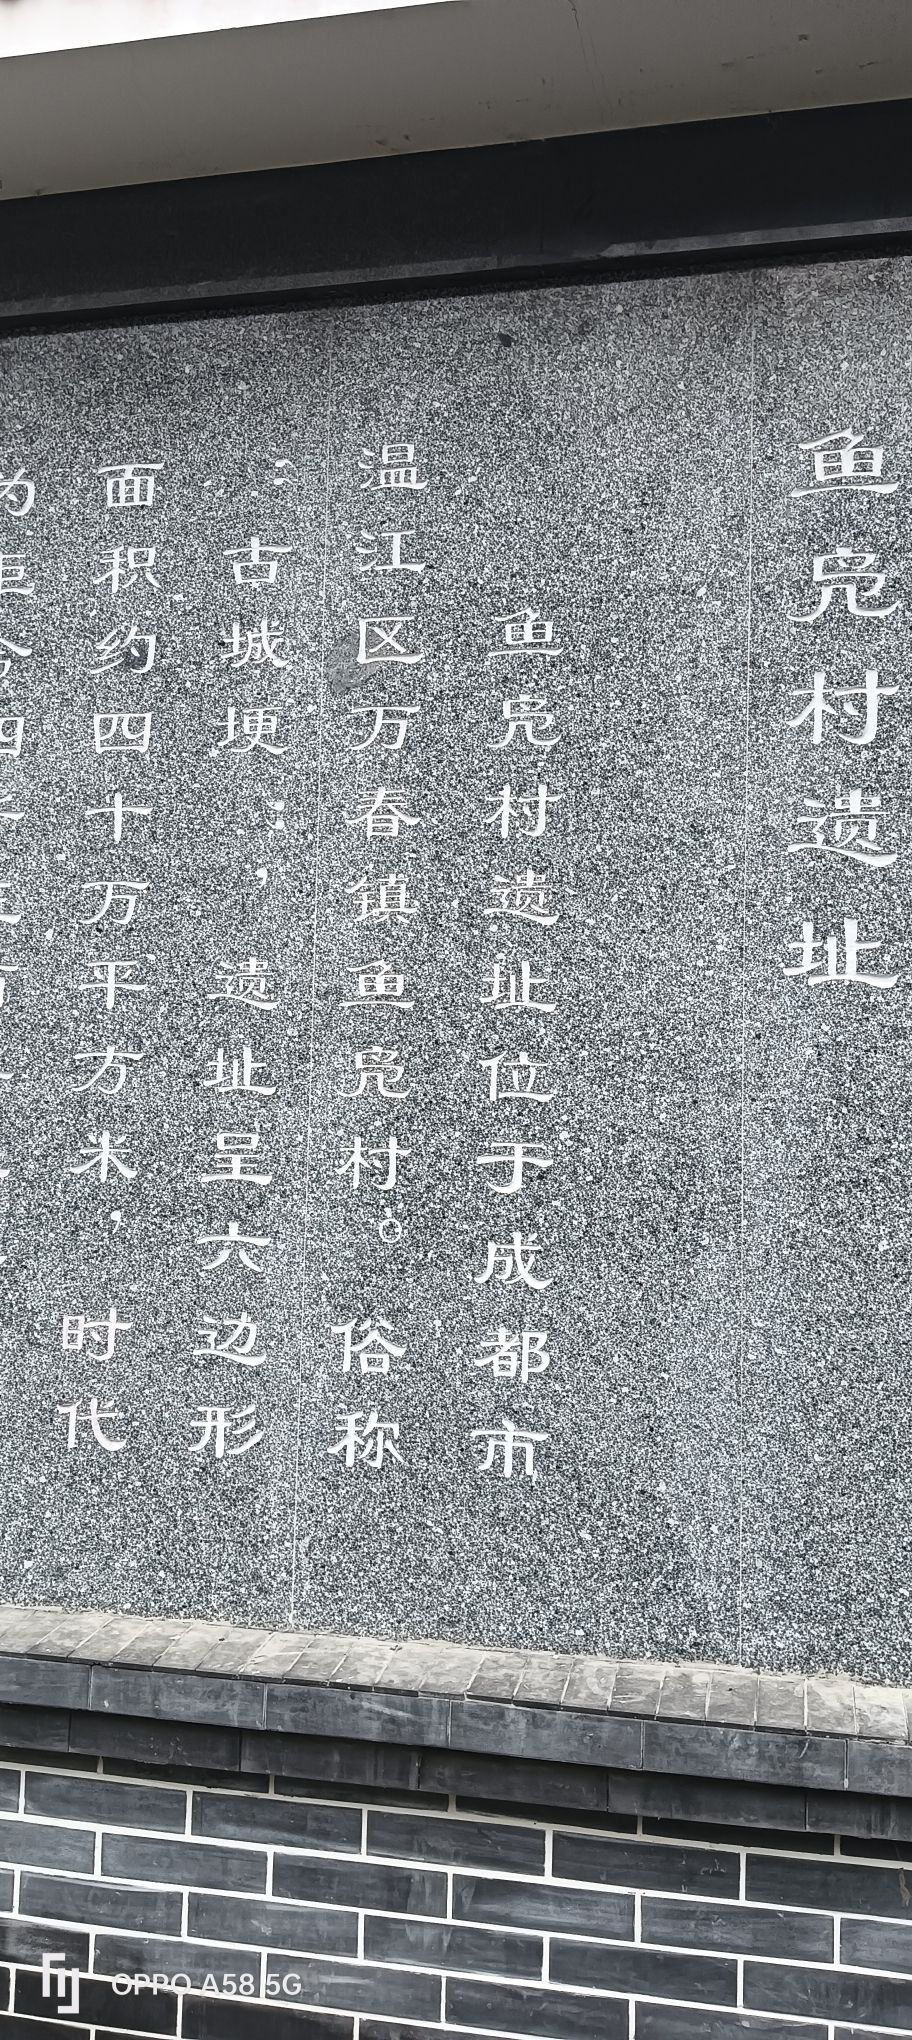 鱼凫村遗址
鱼凫村遗址位于成都市
温江区万春镇鱼凫村。俗称
:古城埂:,遗址呈六边形
面积约四十万平方米,时代
为距今四千
OPPO A58 5G